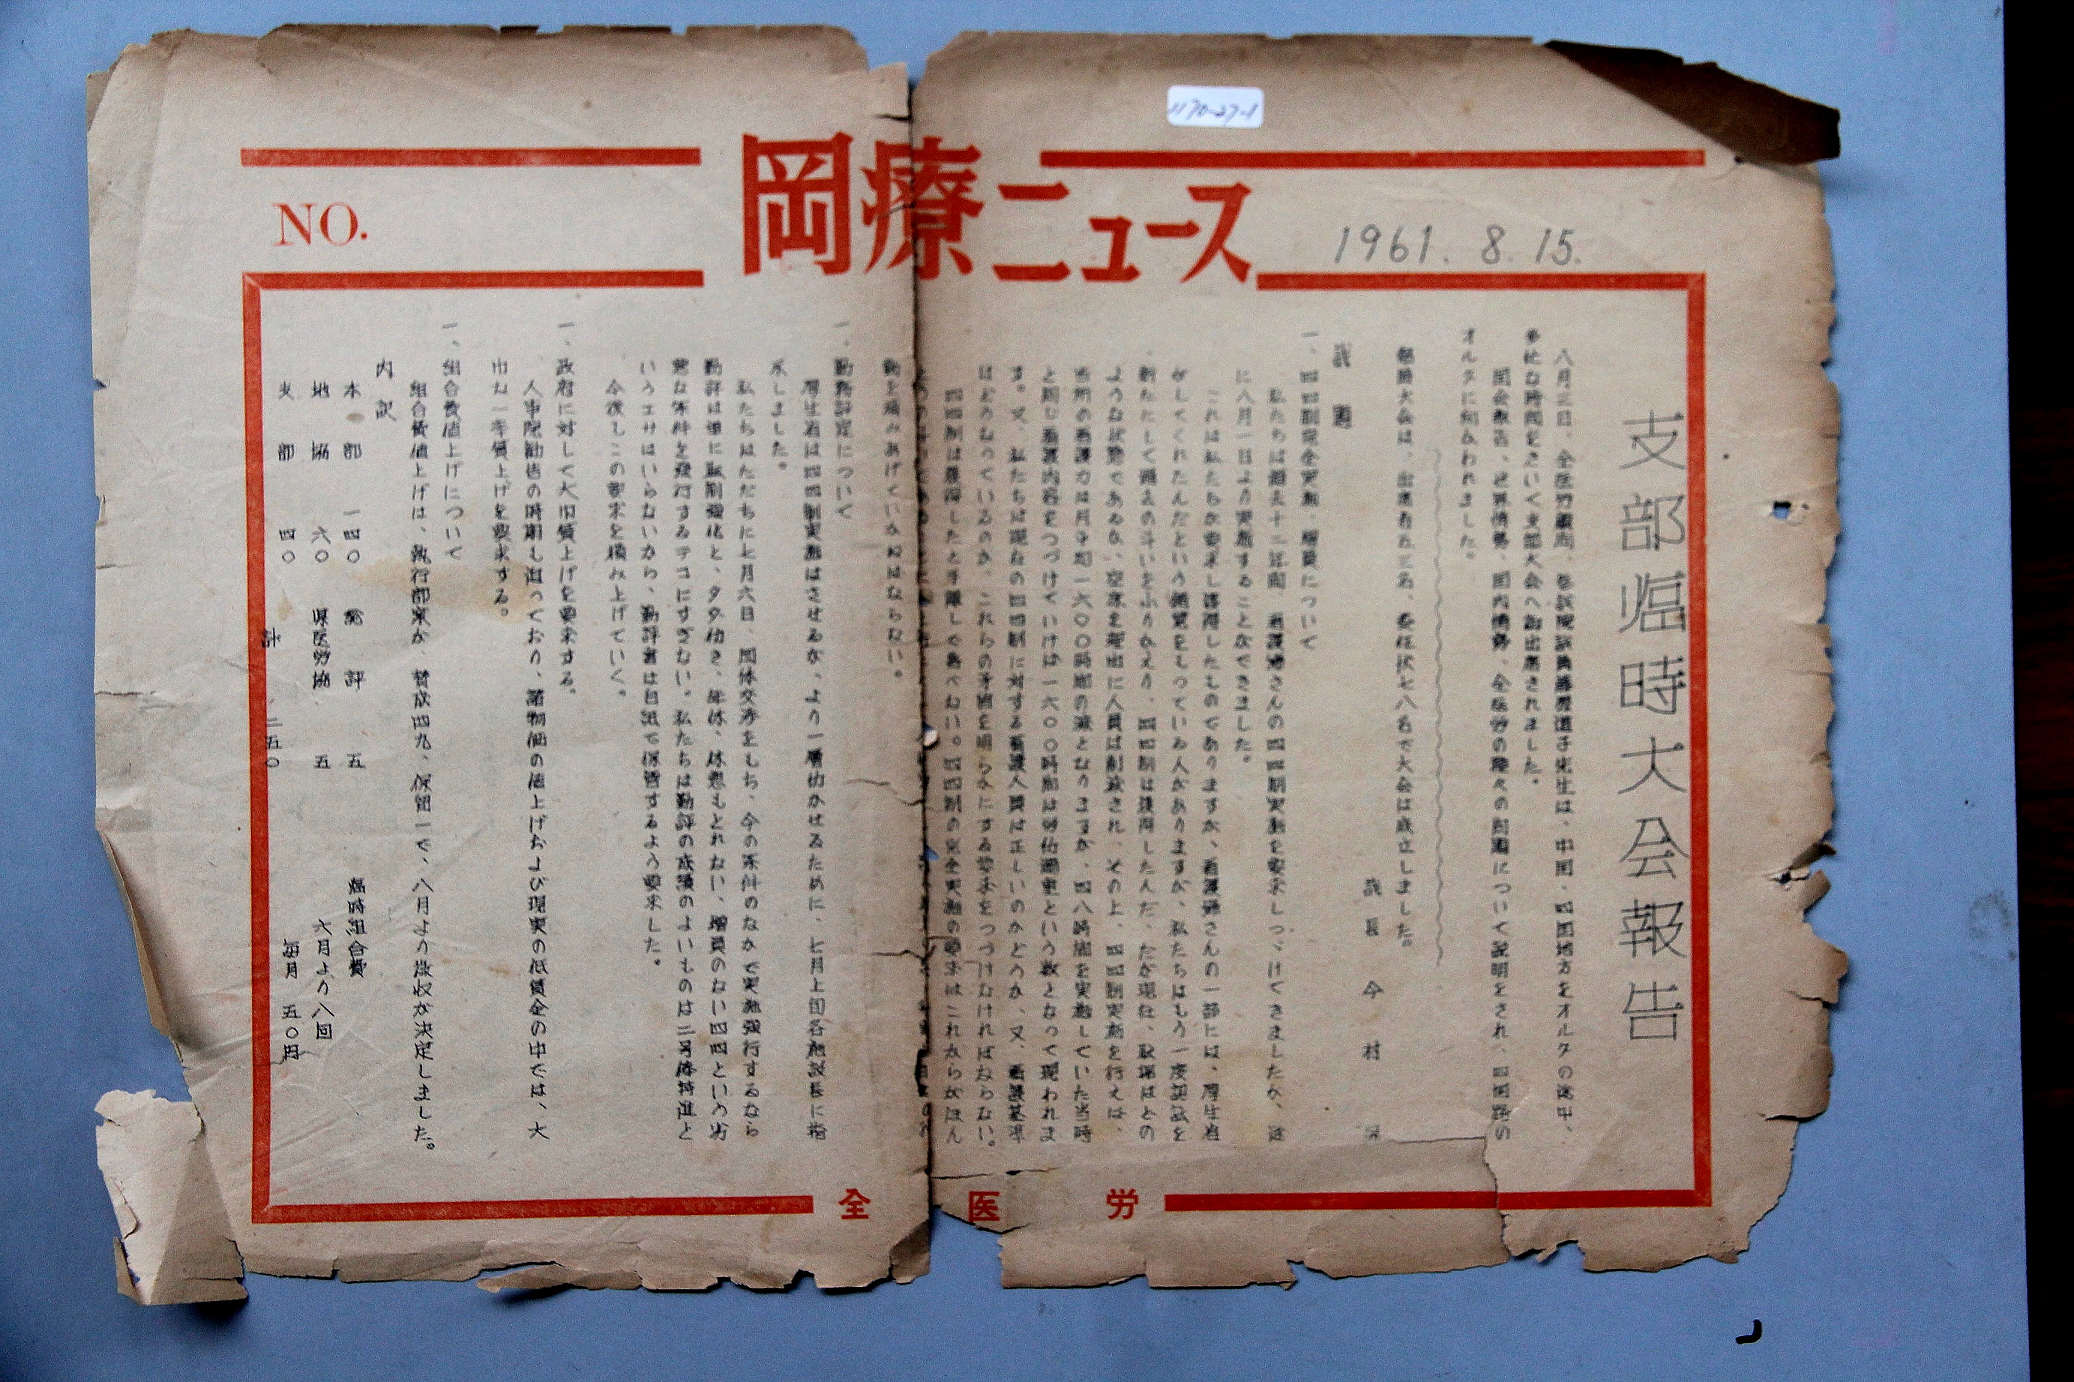 1170-27-1
NO.
岡療ニュース
1961. 8. 15.
支部臨時大会報告
八月三日、全医労顧問、参議院議員藤原道子先生は、中国・四国地方をオルグの途中、
多忙な時間をさいて支部大会へ御出席されました。
国会報告、世界情勢、国内情勢、全医労の際々の問題について説明をされ、四国路の
オルグに向かわれました。
臨時大会は、出席者五三名、委任状七八名で大会は成立しました。
議長 今村
議題
一、四四制完全実施、増員について
私たちは過去十二年間、看護婦さんの四四制実施を要求しつゞけてきましたが、遂
に八月一日より実施することができました。
これは私たちが要求し獲得したものでありますが、看護婦さんの一部には、厚生省
がしてくれたんだという錯覚をもっている人がありますが、私たちはもう一度認識を
新たにして過去の斗いをふりかえり、四四制は獲得した人だ、だが現在、職場はどの
ような状態であるか、空床を理由に人員は削減され、その上、四四制実施を行えば、
当所の看護力は月平均一六〇〇時間の減となりますが、四八時間を実施していた当時
と同じ看護内容をつづけていけば一六〇〇時間は労働過重という数となって現われま
す。又、私たちは現在の四四制に対する看護人員は正しいのかどうか、又、看護基準
はどうなっているのか、これらの矛盾を明らかにする要求をつづけなければならない。
四四制は獲得したと手離しで喜べない。四四制の完全実施の要求はこれからがほん
動を積みあげていかねばならない。
一、勤務評定について
厚生省は四四制実施はさせるが、より一層働かせるために、七月上旬各施設長に指
示しました。
私たちはただちに七月六日、団体交渉をもち、今の条件のなかで実施強行するなら
勤評は単に職制強化と、タダ働き、年休、休憩もとれない、増員のない四四という劣
悪な条件を強行するテコにすぎない。私たちは勤評の成績のよいものは二号俸特進と
いうエサはいらないから、勤評書は白紙で保管するよう要求した。
今後もこの要求を積み上げていく。
一、政府に対して大巾賃上げを要求する。
人事院勧告の時期も迫っており、諸物価の値上げおよび現実の低賃金の中では、大
巾な一率賃上げを要求する。
一、組合費値上げについて
組合費値上げは、執行部案が、賛成四九、保留一で、八月より徴収が決定しました。
内訳
本部 一四〇 総評 五 臨時組合費
地協 六〇 県医労協 五 六月より八回
支部 四〇 毎月 五〇円
計 二五〇
全医労